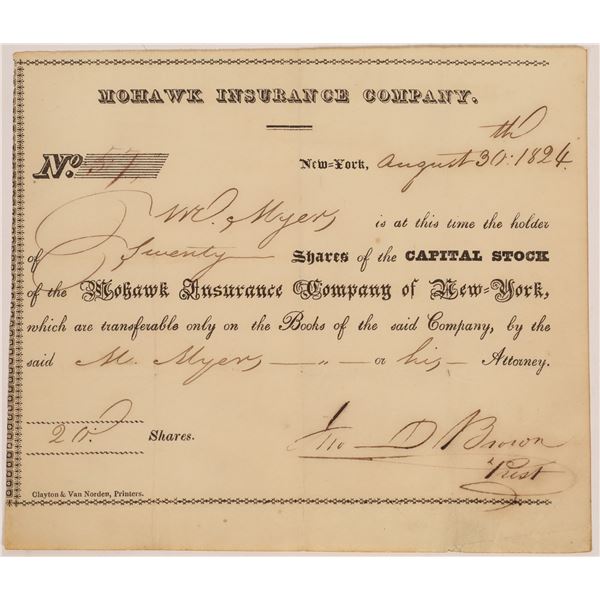 MOHAWK INSURANCE COMPANY.
No. 57,
New=York, August 30th. 1824.
M. Myers is at this time the holder
of Twenty Shares of the CAPITAL STOCK
of the Mohawk Insurance Company of New-York,
which are transferable only on the Books of the said Company, by the
said M. Myers — „ — or his Attorney.
20. Shares.
Jno D Brown
Prest
Clayton & Van Norden, Printers.